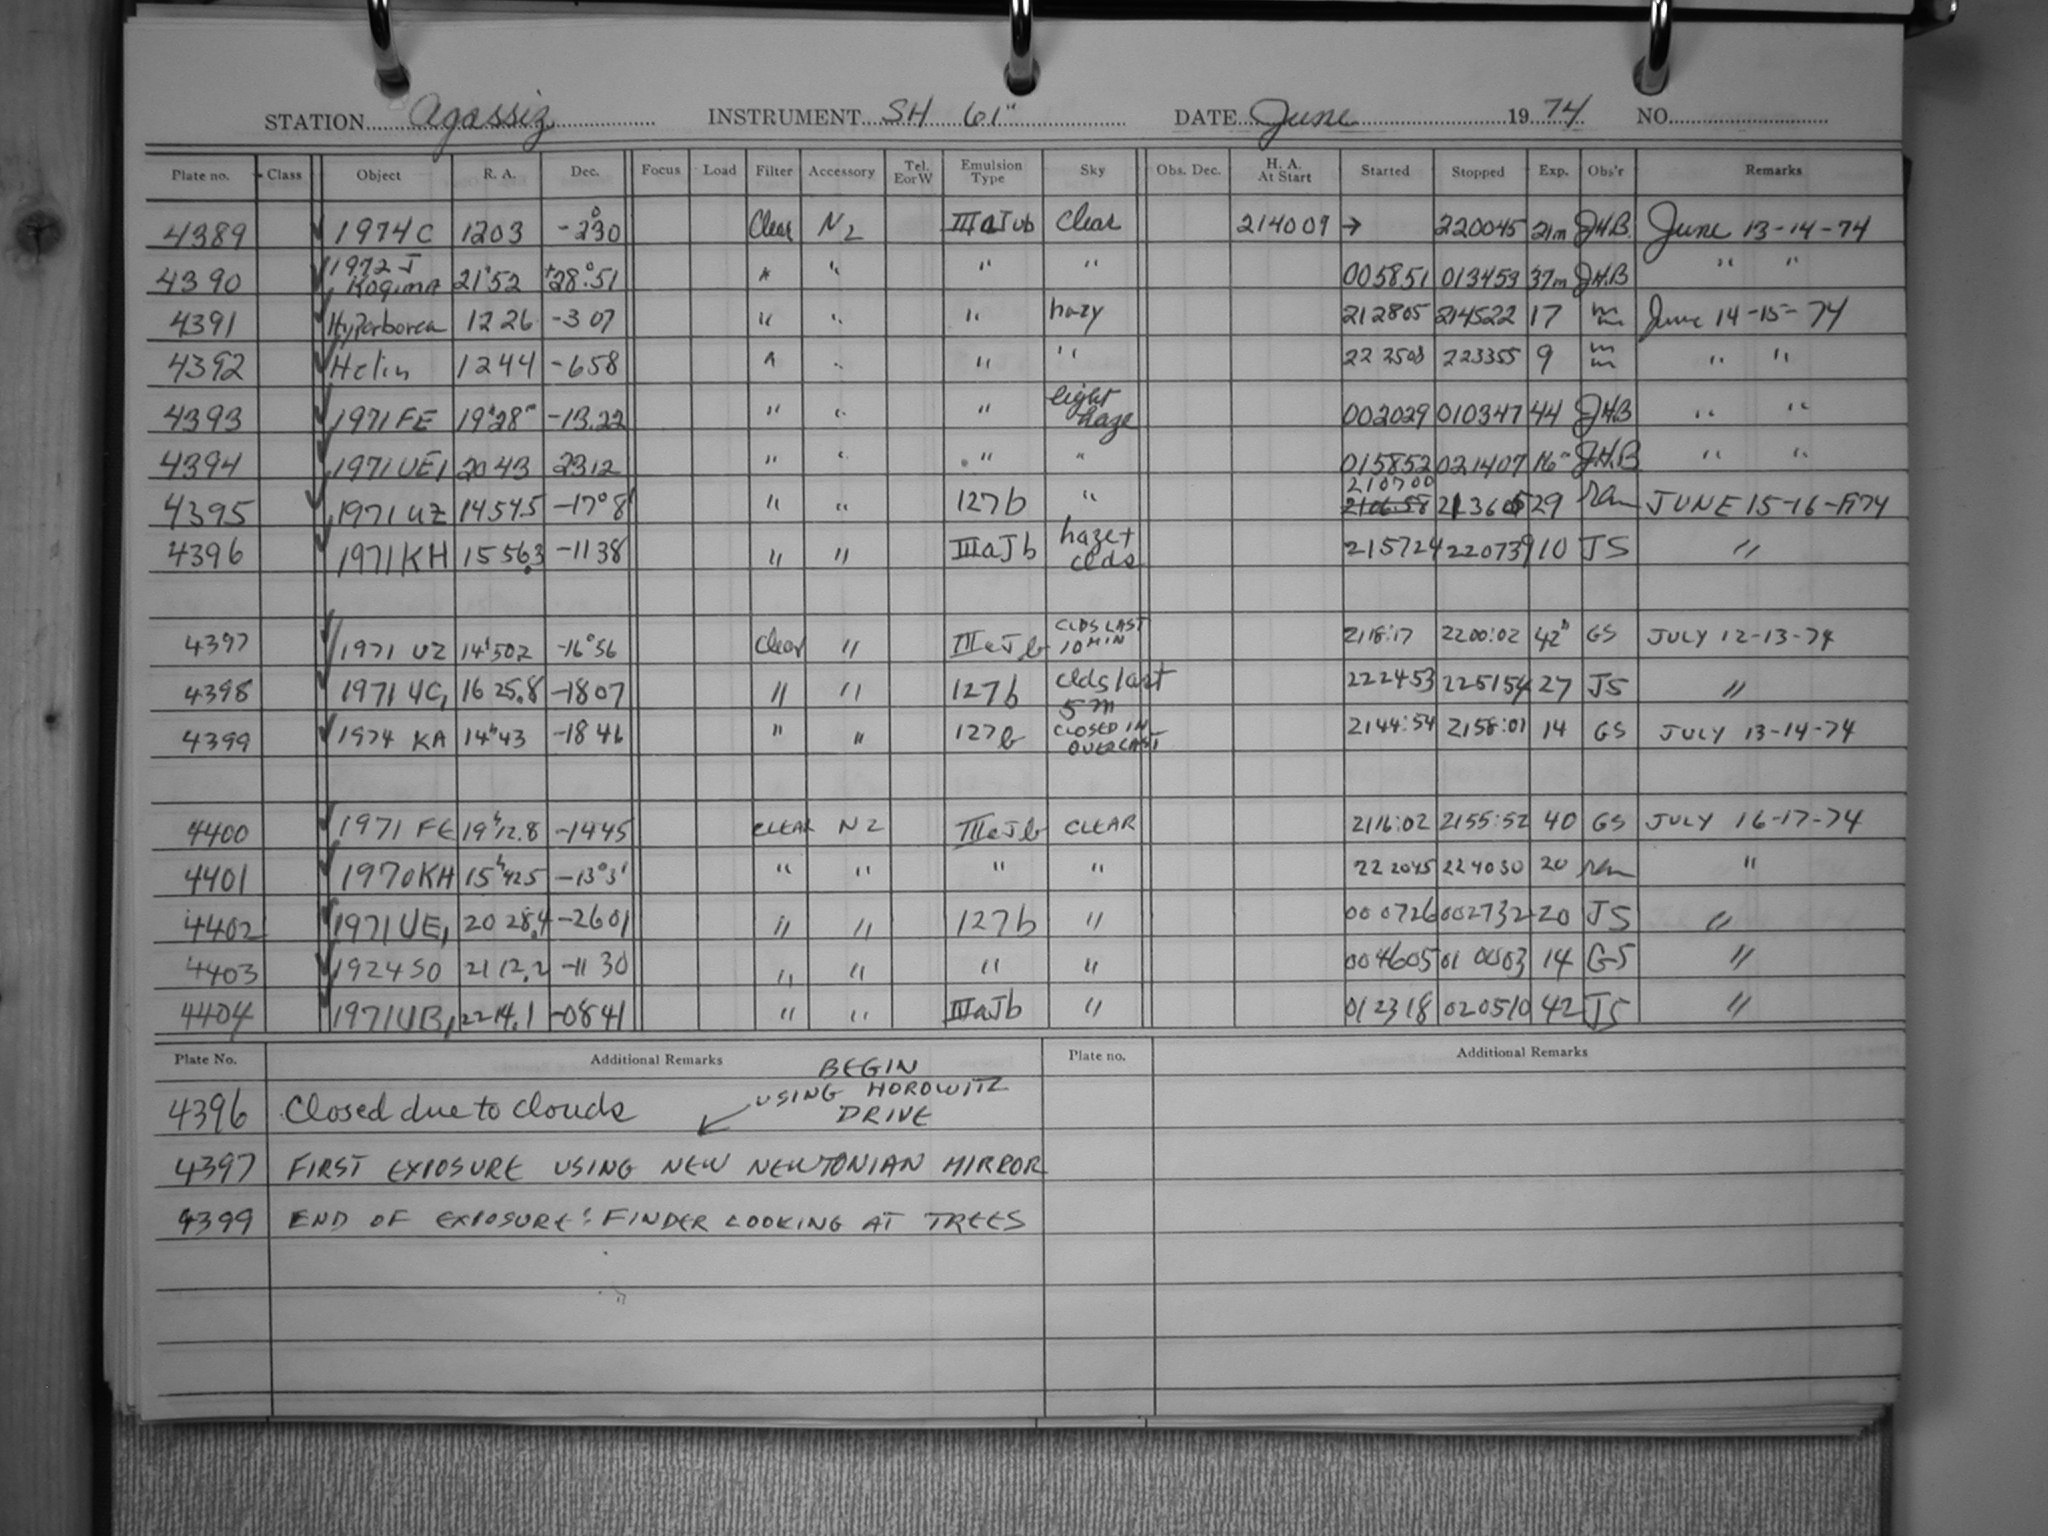 STATION Agassiz INSTRUMENT SH 61" DATE June 19 74 NO.
Plate no. Class Object R. A. Dec. Focus Load Filter Accessory Tel. E or W Emulsion Type Sky Obs. Dec. H. A. At Start Started Stopped Exp. Obs'r Remarks
4389 1974C 1203 -2°30 Clear N2 IIIaJ clear 214009 → 220045 21m JHB June 13-14-74
4390 1972 J Kogima 21 52 +28°51 " " " " 005851 013453 37m JHB " "
4391 Hyperborea 1226 -307 " " " hazy 212805 214522 17 June 14-15-74
4392 Helin 1244 -658 " " " " 222508 223355 9 " "
4393 1971 FE 19h28m -13.22 " " " light haze 002029 010347 44 JHB " "
4394 1971 UE1 20 43 2312 " " " " 015852 021407 16m J.H.B " "
4395 1971 UZ 14 54.5 -17°8' " " 127b " 210700 213605 29 JUNE 15-16-1974
4396 1971 KH 15 56.3 -11 38 " " IIIaJb haze + clds 215724 220739 10 JS "
4397 1971 UZ 14h502 -16°56 Clear " IIIaJb CLDS LAST 10 MIN 2118:17 2200:02 42m GS JULY 12-13-74
4398 1971 UC1 16 25.8 -1807 " " 127b clds last 5m 222453 225154 27 JS "
4399 1974 KA 14h43 -18 46 " " 127b CLOSED IN OVERCAST 2144:54 2158:01 14 GS JULY 13-14-74
4400 1971 FE 19h12.8 -1445 CLEAR N2 IIIaJb CLEAR 2116:02 2155:52 40 GS JULY 16-17-74
4401 1970KH 15h425 -13°3' " " " " 222045 224030 20 "
4402 1971 UE1 20 28.4 -2601 " " 127b " 000726 002732 20 JS "
4403 1924 SO 21 12.2 -11 30 " " " " 004605 010003 14 GS "
4404 1971UB1 22 14.1 -0841 " " IIIaJb " 012318 020510 42 JS "
Plate No. Additional Remarks Plate no. Additional Remarks
BEGIN
USING HOROWITZ
DRIVE
4396 Closed due to clouds
4397 FIRST EXPOSURE USING NEW NEWTONIAN MIRROR
4399 END OF EXPOSURE: FINDER LOOKING AT TREES